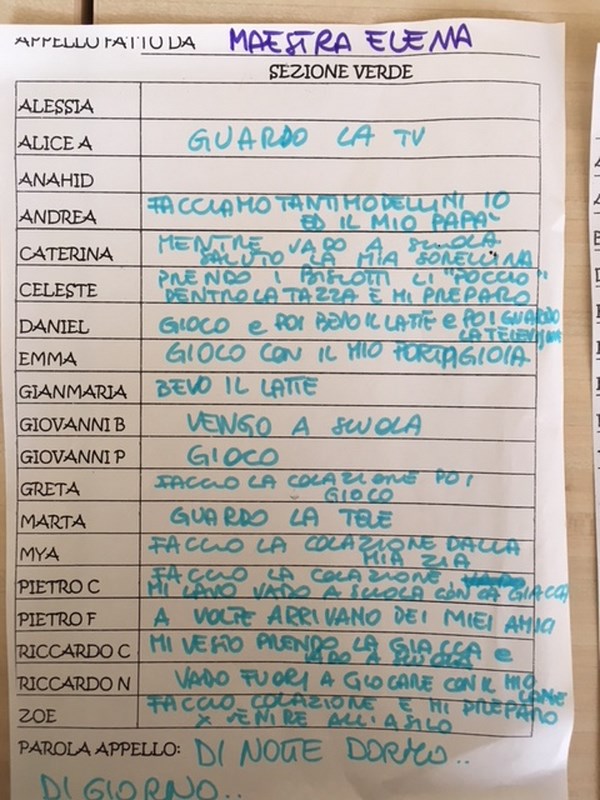 APPELLO FATTO DA MAESTRA ELENA
SEZIONE VERDE
ALESSIA
ALICE A GUARDO LA TV
ANAHID
ANDREA FACCIAMO TANTI MODELLINI IO
ED IL MIO PAPA'
CATERINA MENTRE VADO A SCUOLA
SALUTO LA MIA SORELLINA
CELESTE PRENDO I BISCOTTI LI "POCCIO"
DENTRO LA TAZZA E MI PREPARO
DANIEL GIOCO e POI BEVO IL LATTE e POI GUARDO
LA TELEVISIONE
EMMA GIOCO CON IL MIO PORTAGIOIA
GIANMARIA BEVO IL LATTE
GIOVANNI B VENGO A SCUOLA
GIOVANNI P GIOCO
GRETA FACCIO LA COLAZIONE POI
GIOCO
MARTA GUARDO LA TELE
MYA FACCIO LA COLAZIONE DALLA
MIA ZIA
PIETRO C FACCIO LA COLAZIONE
MI LAVO VADO A SCUOLA CON LA GIACCA
PIETRO F A VOLTE ARRIVANO DEI MIEI AMICI
RICCARDO C MI VESTO PRENDO LA GIACCA e
VADO A SCUOLA
RICCARDO N VADO FUORI A GIOCARE CON IL MIO
CANE
ZOE FACCIO COLAZIONE E MI PREPARO
X VENIRE ALL'ASILO
PAROLA APPELLO: DI NOTTE DORMO..
DI GIORNO..